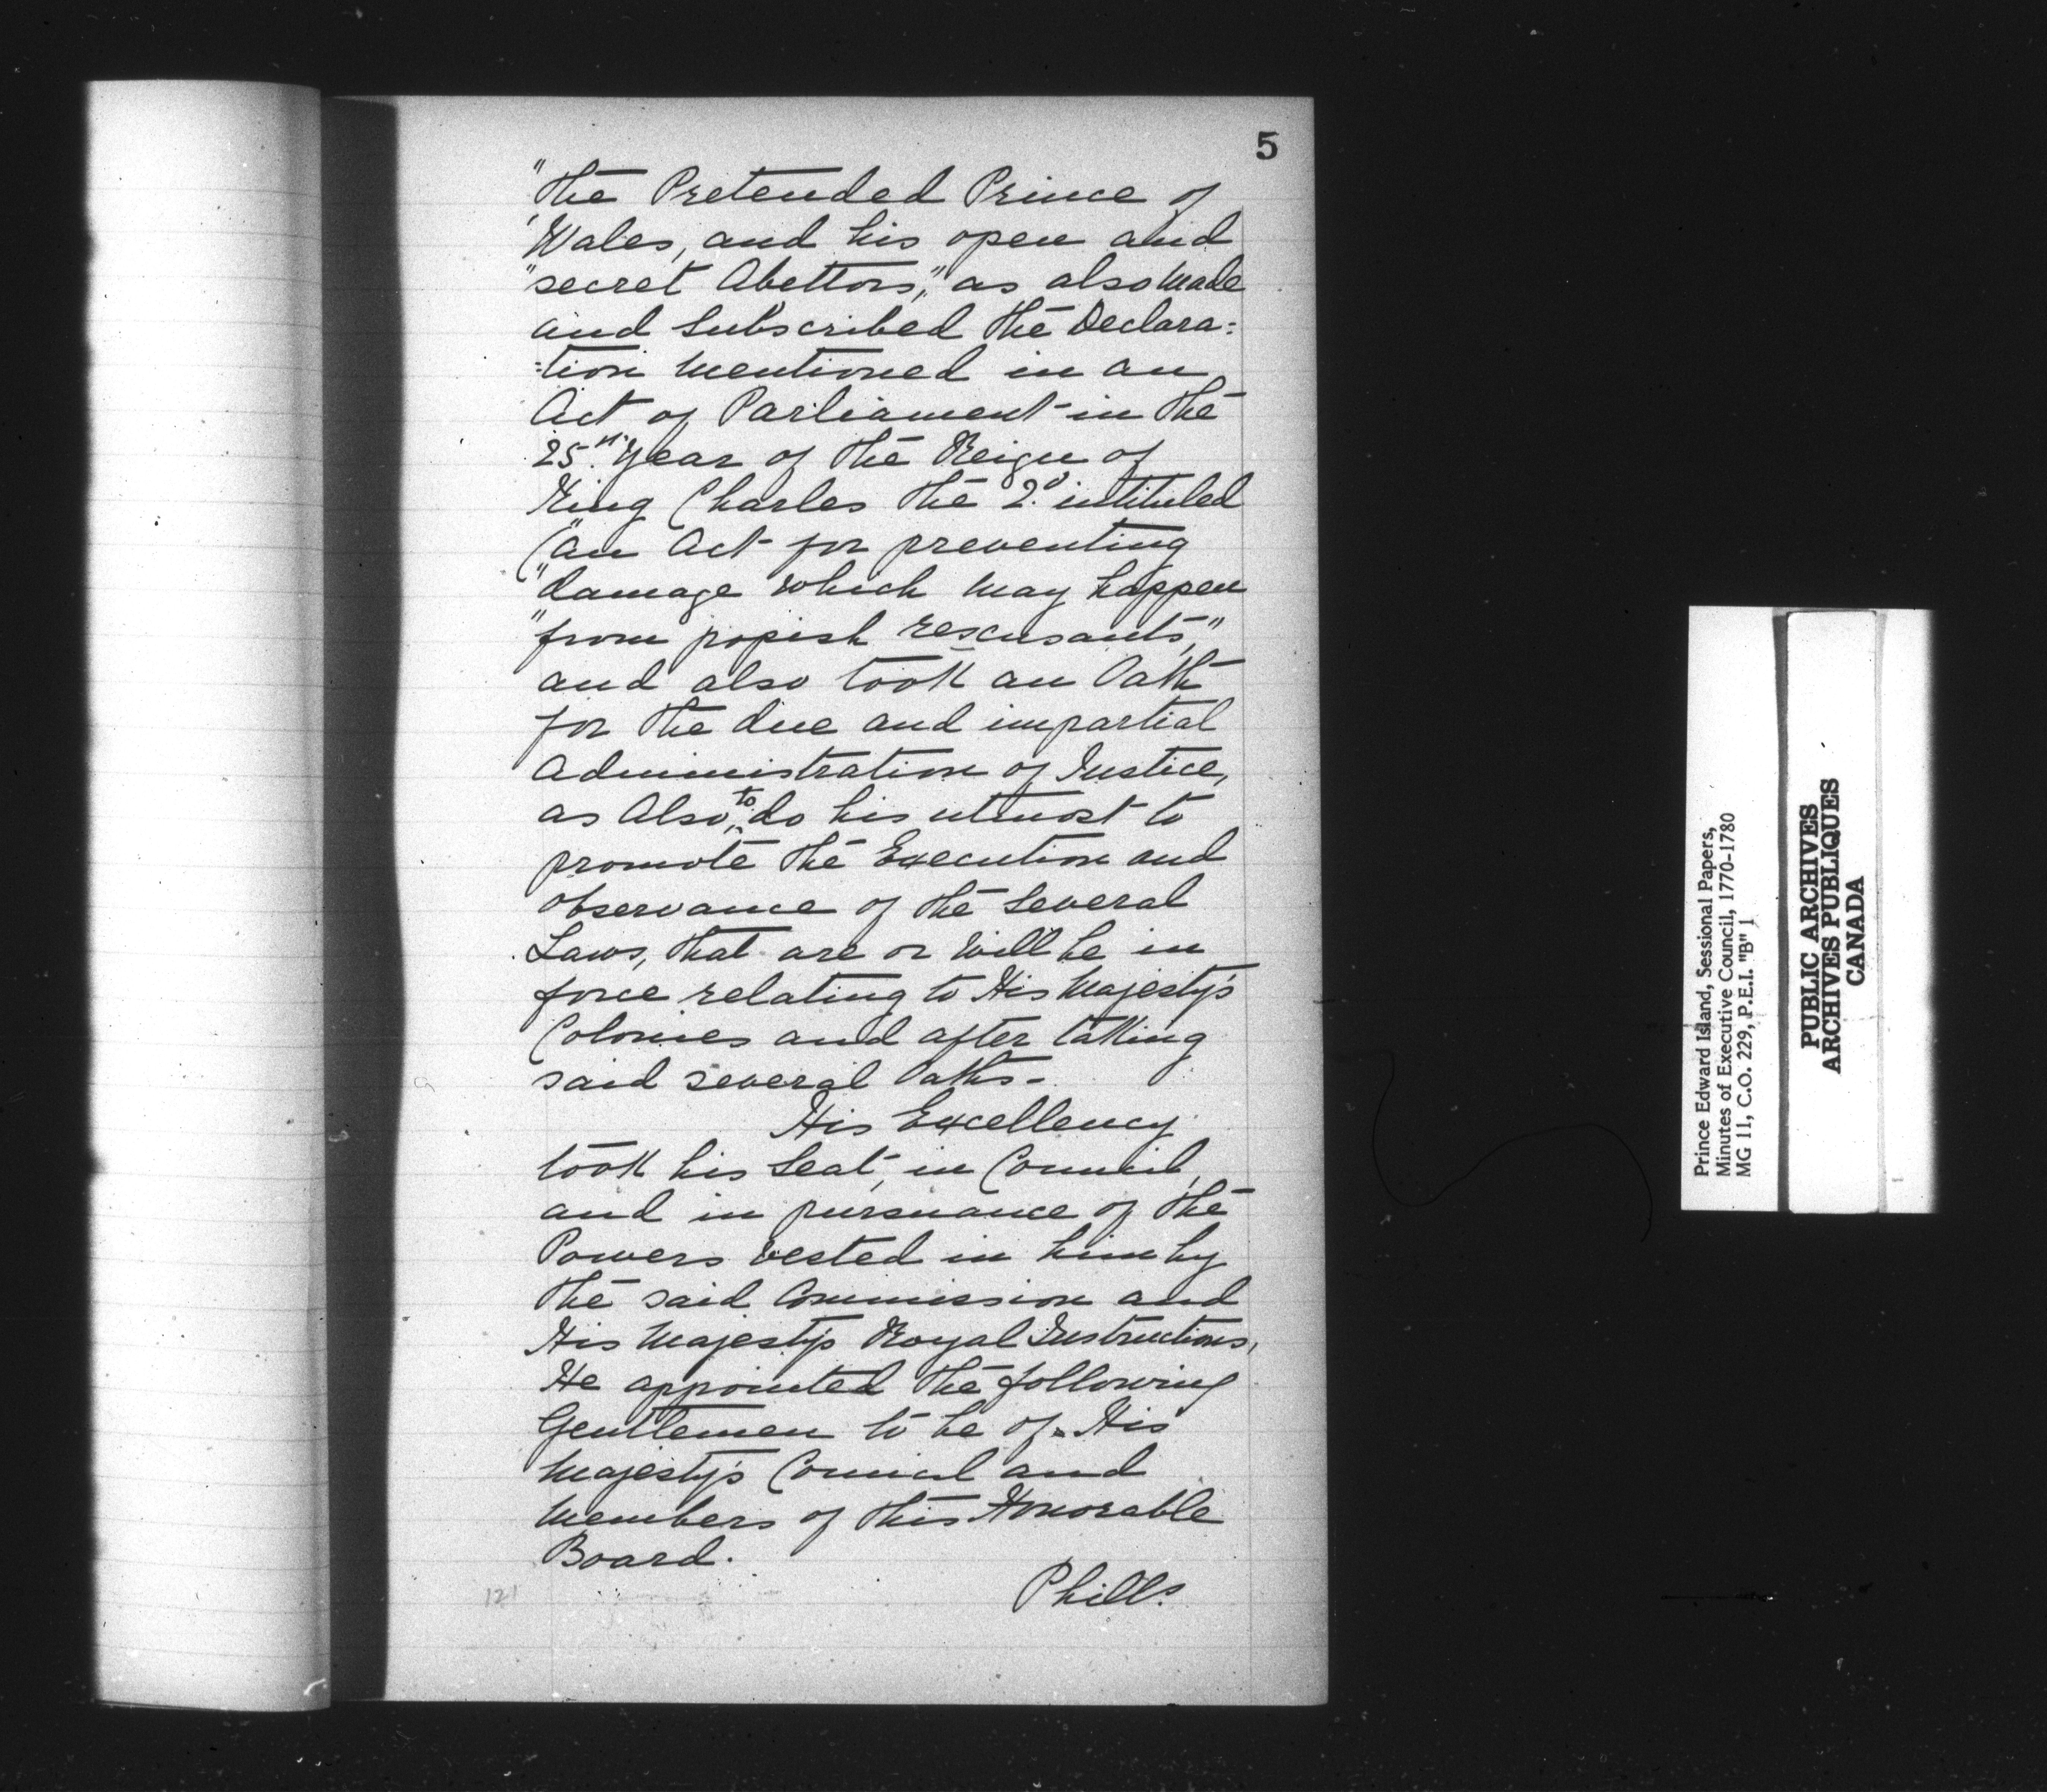 5
"the Pretended Prince of
"Wales, and his open and
"secret Abettors," as also Made
and Subscribed the Declara=
=tion Mentioned in an
Act of Parliament in the
25th Year of the Reign of
King Charles the 2d intituled
("An Act for preventing
"damage which may happen
"from popish rescusants,"
and also took an Oath
for the due and impartial
Administration of Justice,
as Also, to do his utmost to
promote the Execution and
observance of the Several
Laws, that are or will be in
force relating to His Majesty's
Colonies and after taking
said several Oaths-
His Excellency
took his Seat, in Council,
and in pursuance of the
Powers vested in him by
the said Commission and
His Majesty's Royal Instructions,
He appointed the following
Gentlemen to be of His
Majesty's Council and
Members of this Honorable
Board.
Phill.s
121
Prince Edward Island, Sessional Papers,
Minutes of Executive Council, 1770-1780
MG 11, C.O. 229, P.E.I. "B" 1
PUBLIC ARCHIVES
ARCHIVES PUBLIQUES
CANADA